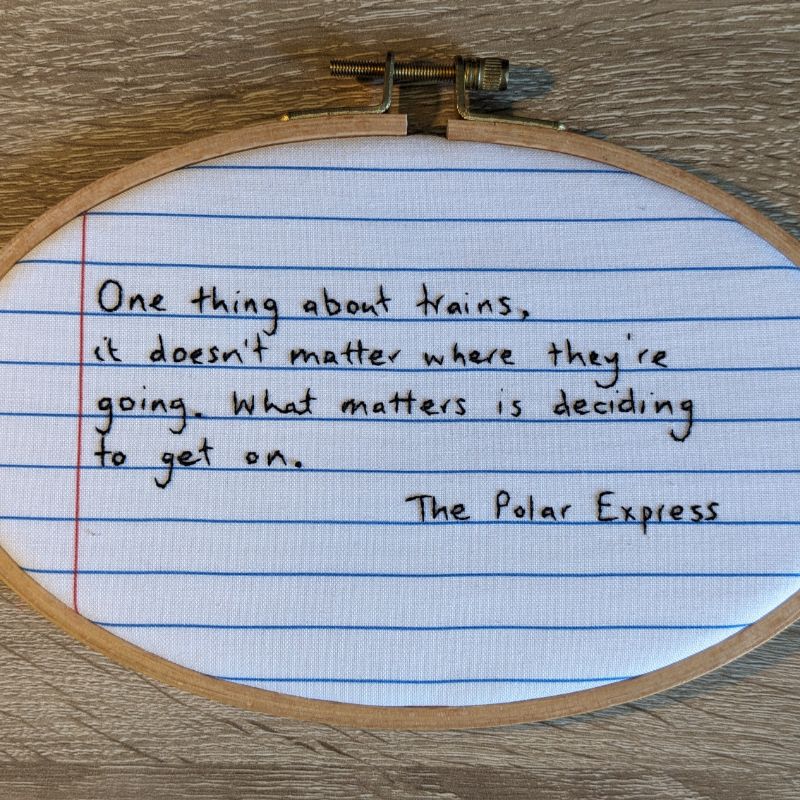 One thing about trains,
it doesn't matter where they're
going. What matters is deciding
to get on.
The Polar Express